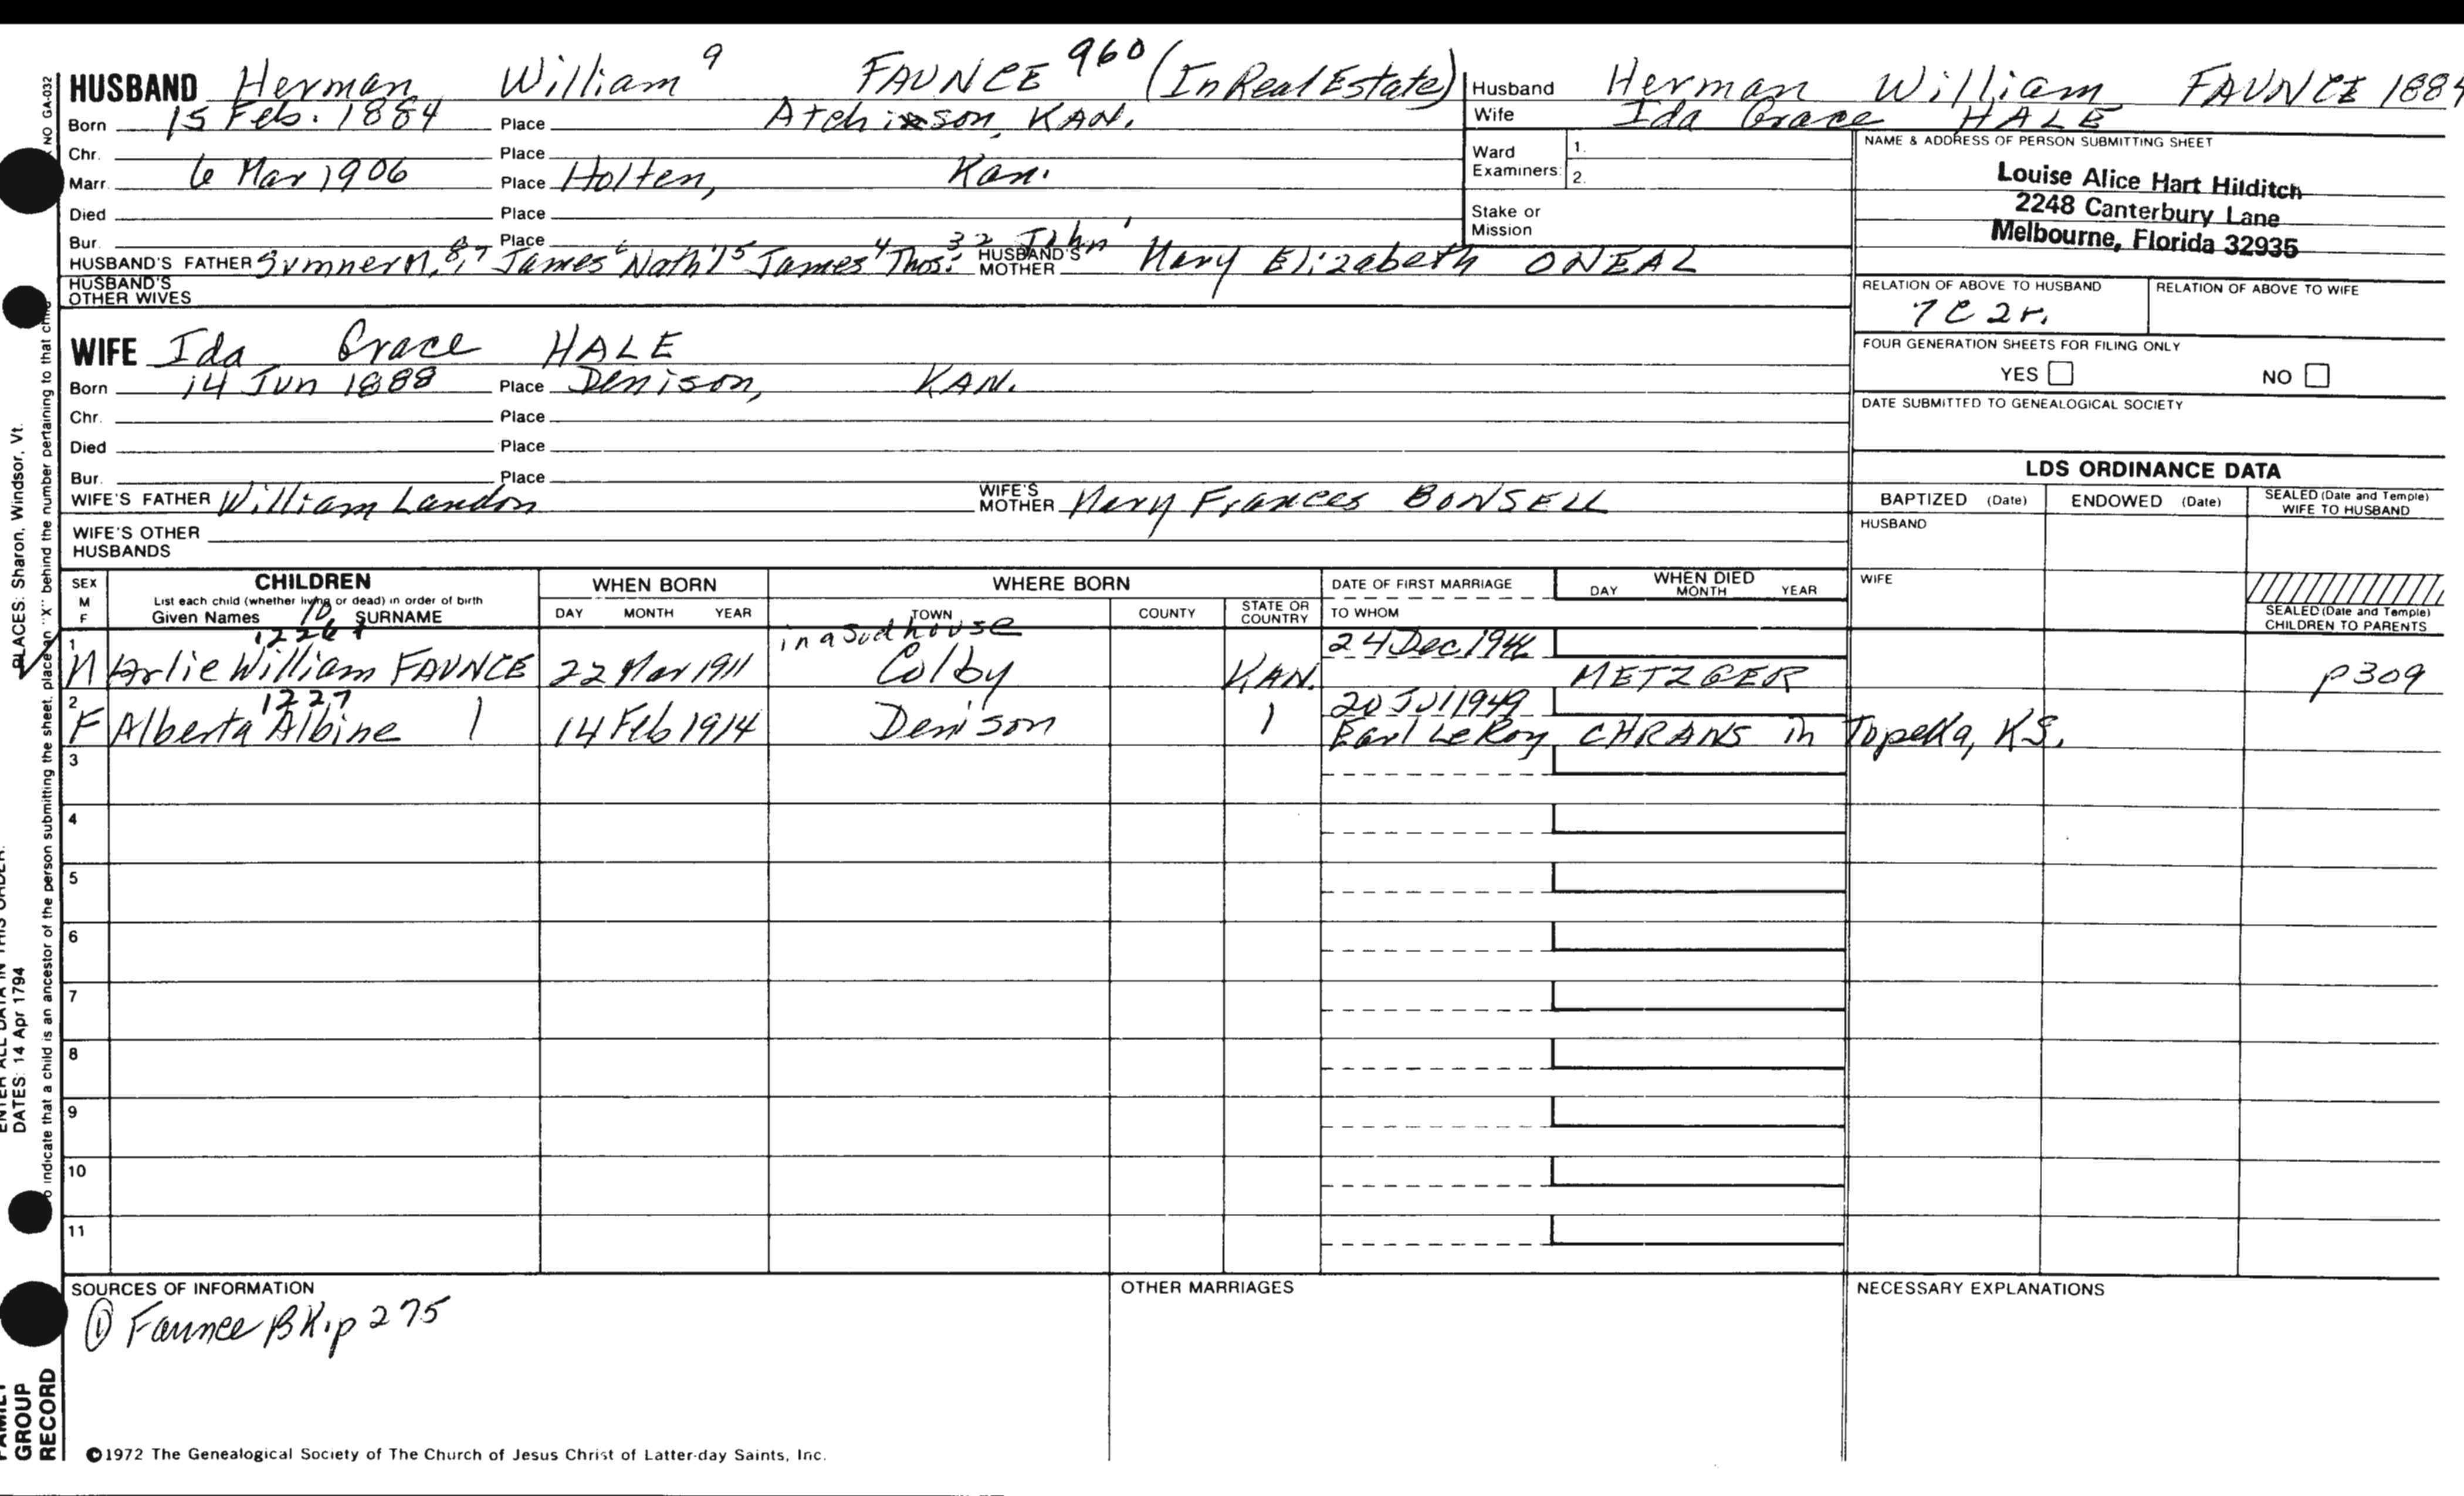 HUSBAND Herman William 9 FAUNCE 960 (In Real Estate)
Born 15 Feb. 1884 Place Atchison, KAN.
Chr. Place
Marr. 6 Mar 1906 Place Holten, Kan.
Died Place
Bur. Place
HUSBAND'S FATHER Sumner M. 8, 7 James 6 Nath'l 5 James 4 Thos. 3 2 John 1 HUSBAND'S MOTHER Mary Elizabeth ONEAL
HUSBAND'S OTHER WIVES
WIFE Ida Grace HALE
Born 14 Jun 1888 Place Denison, KAN.
Chr. Place
Died Place
Bur. Place
WIFE'S FATHER William Landon WIFE'S MOTHER Mary Frances BONSELL
WIFE'S OTHER HUSBANDS
Husband Herman William FAUNCE 1884
Wife Ida Grace HALE
Ward Examiners: 1.
2.
Stake or Mission
NAME & ADDRESS OF PERSON SUBMITTING SHEET
Louise Alice Hart Hilditch
2248 Canterbury Lane
Melbourne, Florida 32935
RELATION OF ABOVE TO HUSBAND RELATION OF ABOVE TO WIFE
7C 2r.
FOUR GENERATION SHEETS FOR FILING ONLY
YES NO
DATE SUBMITTED TO GENEALOGICAL SOCIETY
LDS ORDINANCE DATA
BAPTIZED (Date) ENDOWED (Date) SEALED (Date and Temple) WIFE TO HUSBAND
HUSBAND
WIFE
SEALED (Date and Temple) CHILDREN TO PARENTS
SEX M F CHILDREN WHEN BORN WHERE BORN DATE OF FIRST MARRIAGE WHEN DIED
List each child (whether living or dead) in order of birth DAY MONTH YEAR
Given Names 10 SURNAME DAY MONTH YEAR TOWN COUNTY STATE OR COUNTRY TO WHOM
1 1226 + in a Sod house 24 Dec 1946
M Arlie William FAUNCE 22 Mar 1911 Colby KAN. METZGER p309
2 1227 20 Jul 1949
F Alberta Albine 1 14 Feb 1914 Denison 1 Earl LeRoy CHRANS in Topeka, KS.
3
4
5
6
7
8
9
10
11
SOURCES OF INFORMATION OTHER MARRIAGES NECESSARY EXPLANATIONS
① Faunce BK. p 275
©1972 The Genealogical Society of The Church of Jesus Christ of Latter-day Saints, Inc.
NO GA-032
indicate that a child is an ancestor of the person submitting the sheet, place an "X" behind the number pertaining to that child
PLACES: Sharon, Windsor, Vt.
ENTER ALL DATA IN THIS ORDER:
DATES: 14 Apr 1794
FAMILY
GROUP
RECORD